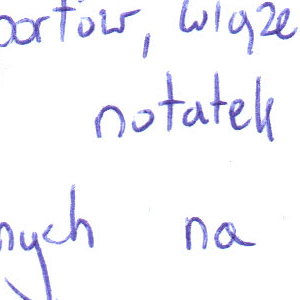 portów, wiąże
notatek
nych na